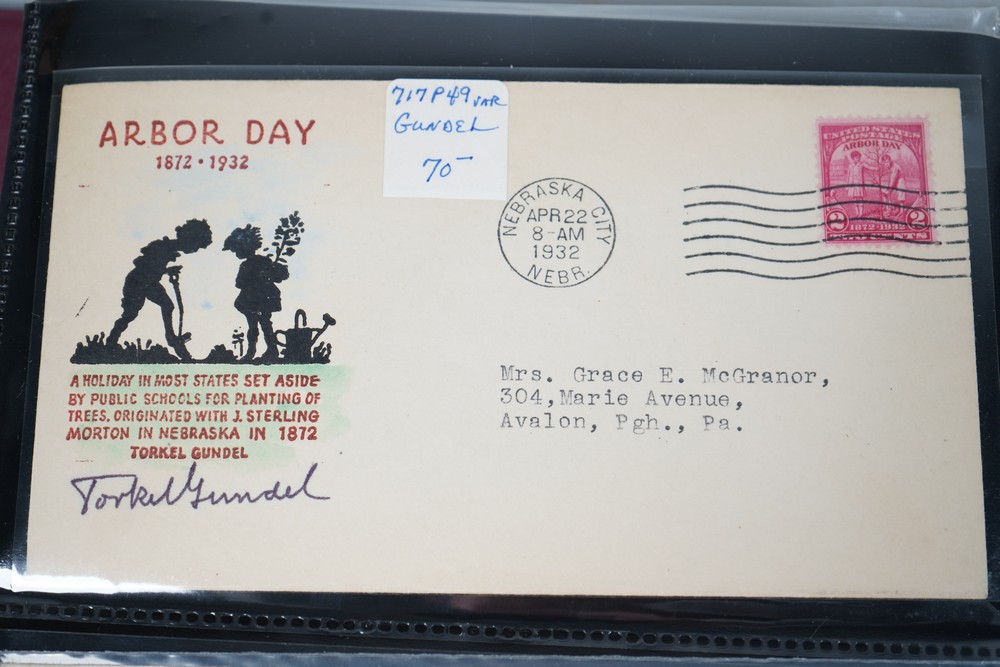 ARBOR DAY
1872 • 1932
717P49 VAR
GUNDEL
70-
UNITED STATES
POSTAGE
ARBOR DAY
2 2
1872-1932
TWO CENTS
NEBRASKA CITY
APR 22
8-AM
1932
NEBR.
A HOLIDAY IN MOST STATES SET ASIDE
BY PUBLIC SCHOOLS FOR PLANTING OF
TREES. ORIGINATED WITH J. STERLING
MORTON IN NEBRASKA IN 1872
TORKEL GUNDEL
Torkel Gundel
Mrs. Grace E. McGranor,
304,Marie Avenue,
Avalon, Pgh., Pa.